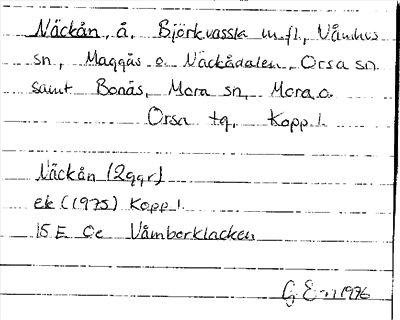 Näckån, å, Björkvassla m.fl., Våmhus
sn, Maggås o. Näckådalen, Orsa sn
samt Bonäs, Mora sn, Mora o.
Orsa tg, Kopp. l.
Näckån (2ggr)
ek (1975) Kopp l
15E Ce Våmberklacken
G E 1976